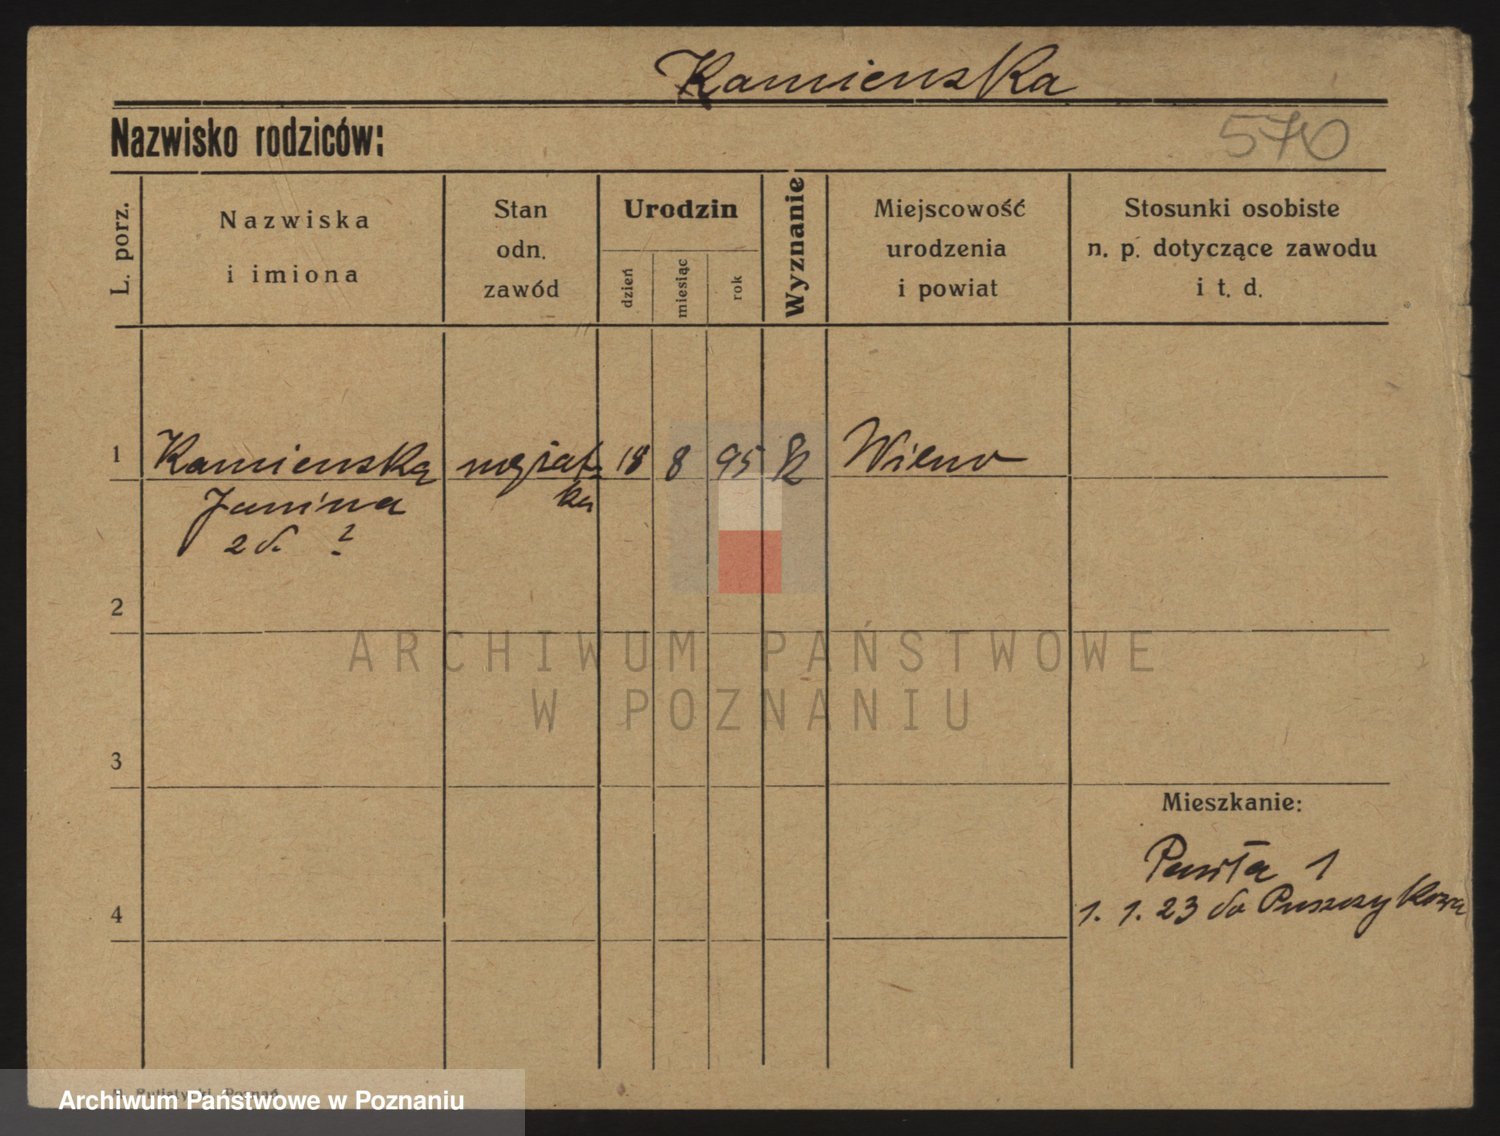 Kamienska
Nazwisko rodziców:
570
L. porz.
Nazwiska
i imiona
Stan
odn.
zawód
Urodzin
dzień
miesiąc
rok
Wyznanie
Miejscowość
urodzenia
i powiat
Stosunki osobiste
n. p. dotyczące zawodu
i t. d.
1
Kamienska
mężat-
18
8
95
Wilno
Janina
ka
2 d. ?
2
ARCHIWUM PAŃSTWOWE
W POZNANIU
3
Mieszkanie:
Pawła 1
4
1. 1. 23 do Puszczykowa
Poznań
Archiwum Państwowe w Poznaniu